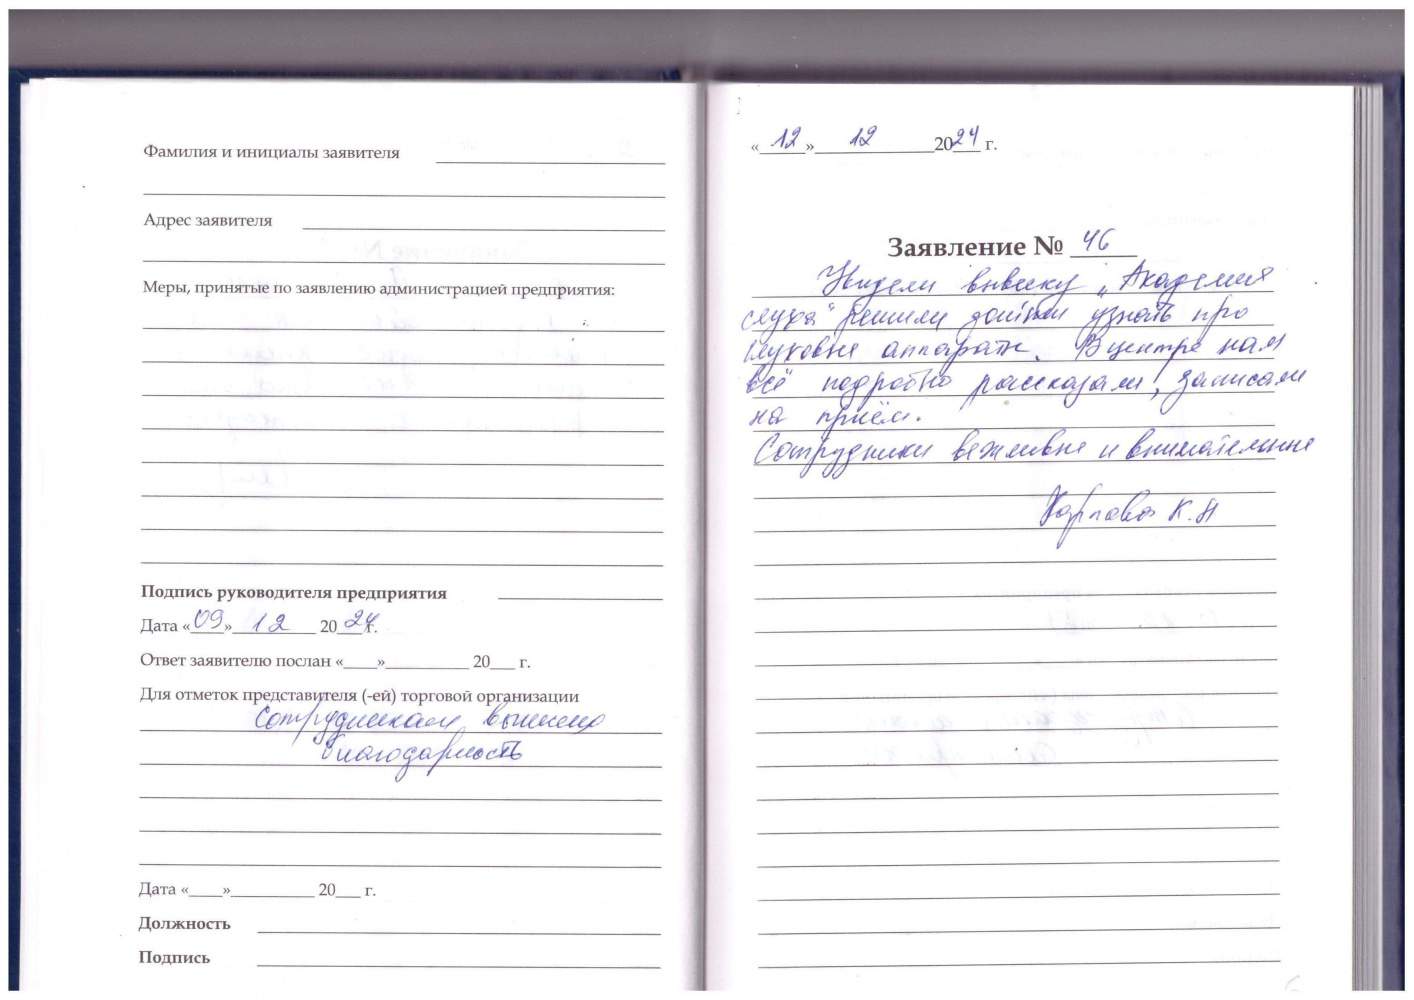 Фамилия и инициалы заявителя
Адрес заявителя
Меры, принятые по заявлению администрацией предприятия:
Подпись руководителя предприятия
Дата «09» 12 2024 г.
Ответ заявителю послан «____»__________ 20___ г.
Для отметок представителя (-ей) торговой организации
Сотрудникам
благодарность
Дата «____»__________ 20___ г.
Должность
Подпись
«12» 12 2024 г.
Заявление № 46
Увидели вывеску „Академия
слуха" решили зайти узнать про
слуховые аппараты. В центре нам
всё подробно рассказали, записали
на приём.
Сотрудники вежливые и внимательные
Карпова К.Н